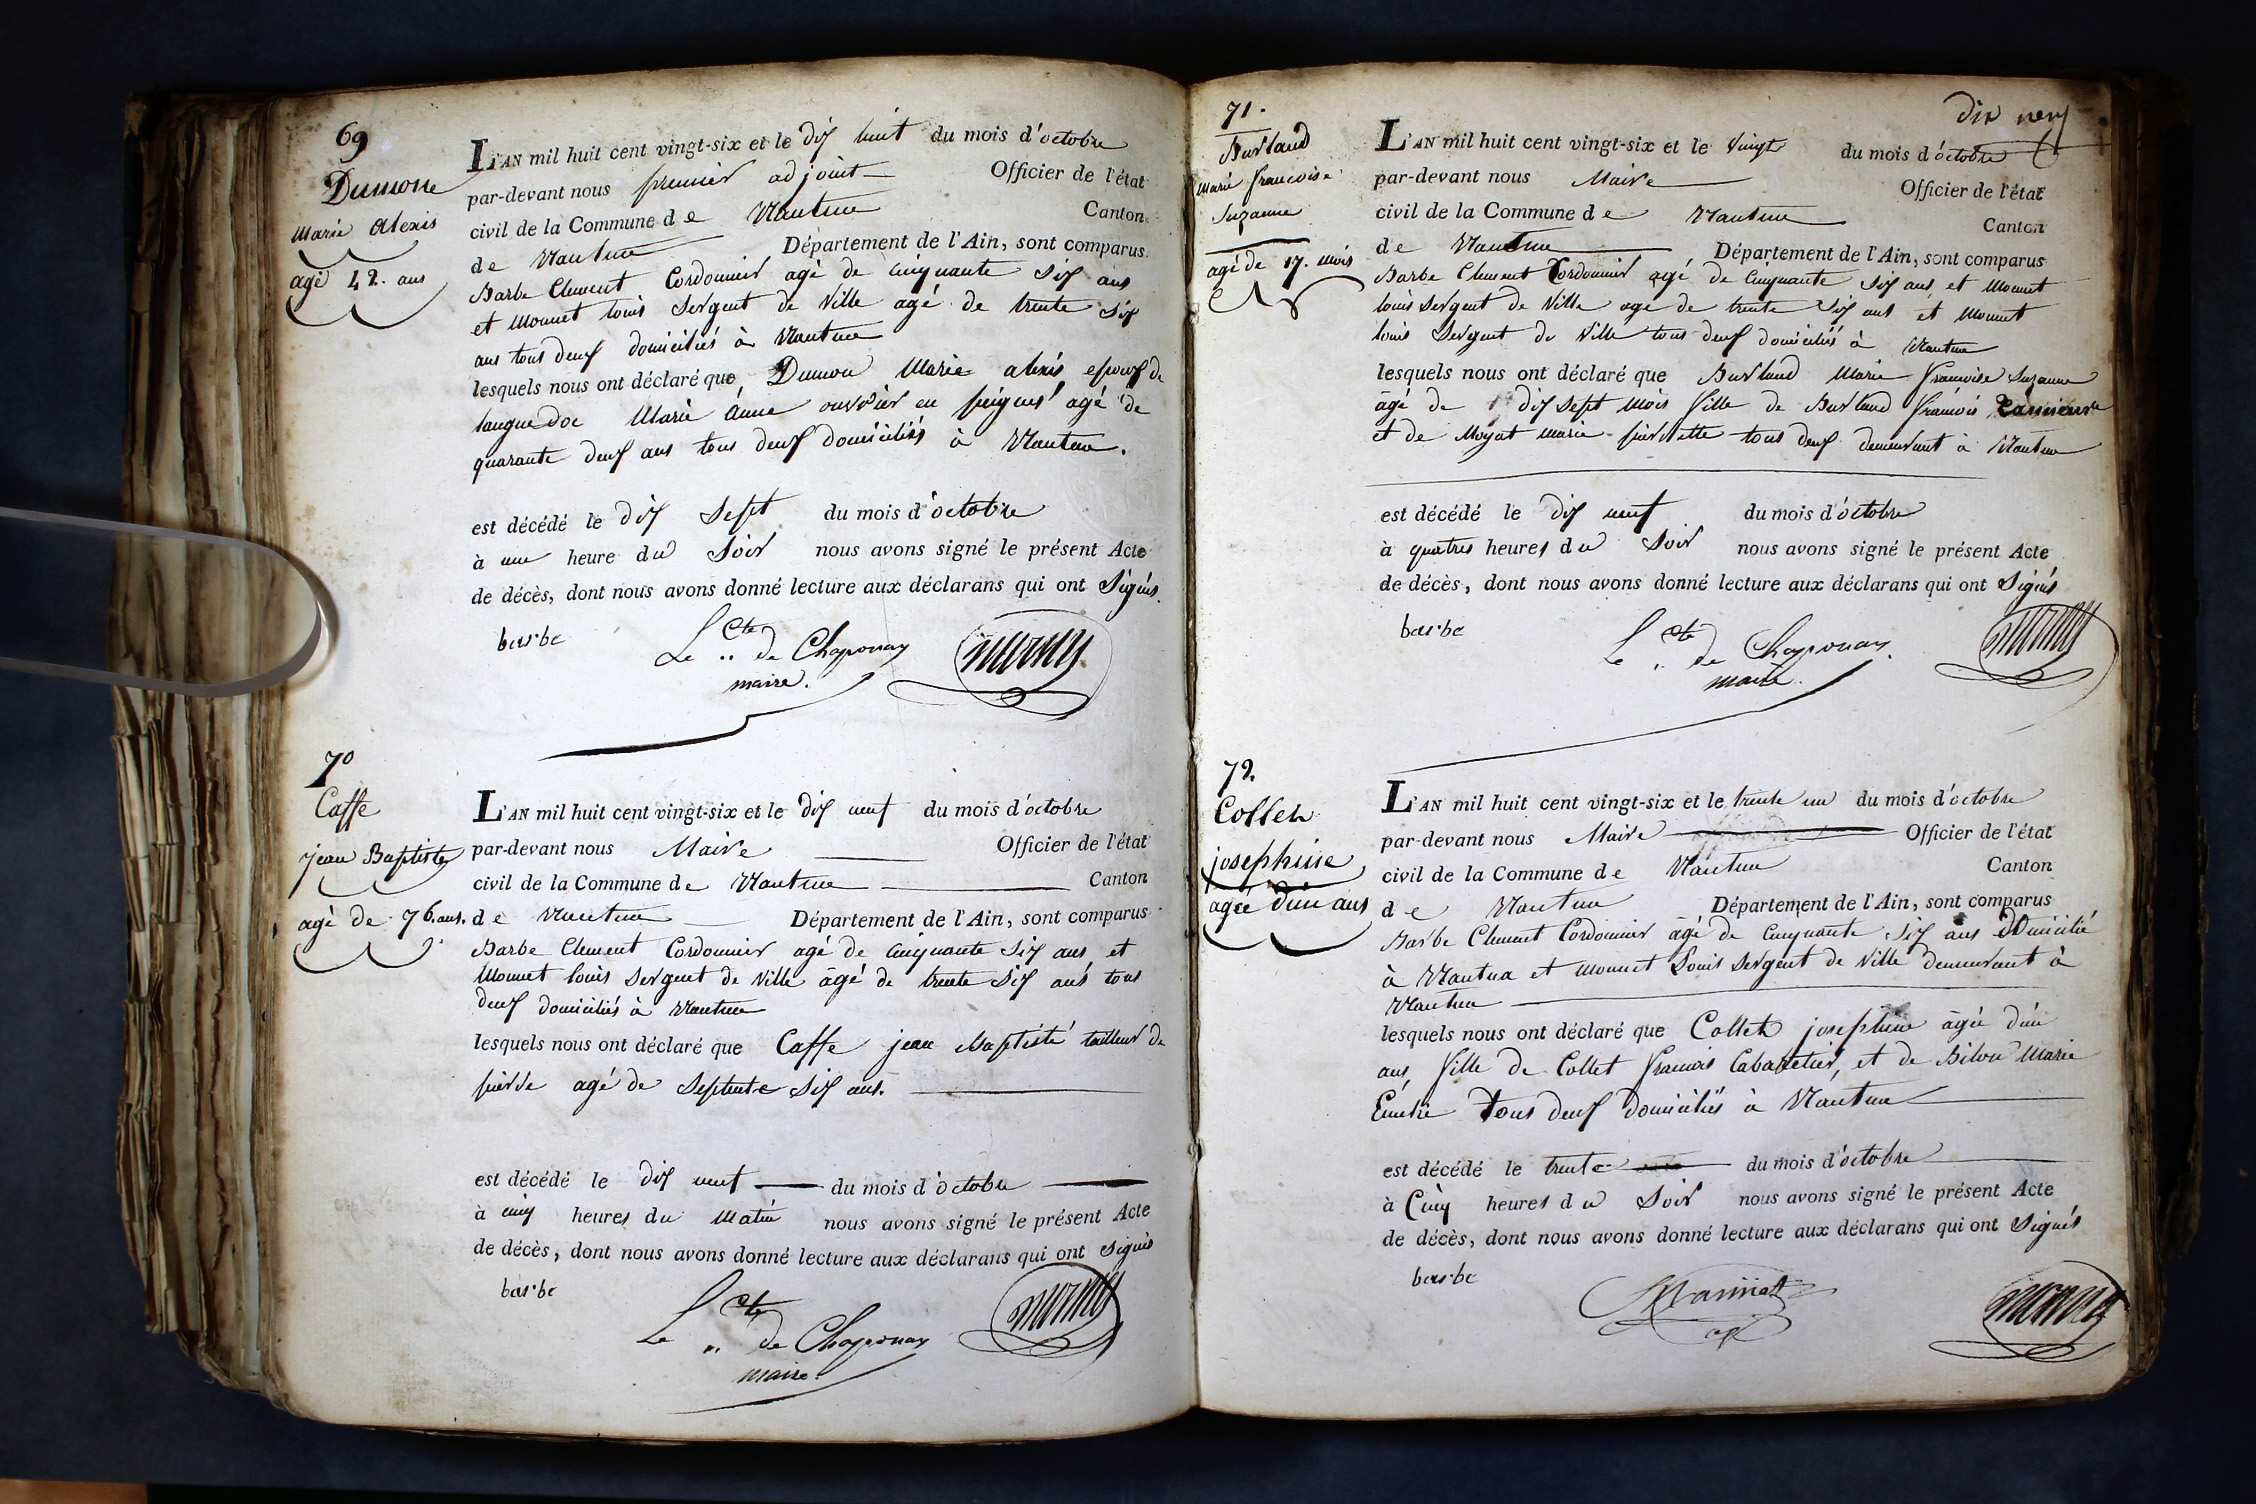 69
Dumone
Marie Alexis
agé 42. ans
L'AN mil huit cent vingt-six et le dix huit du mois d'octobre
par-devant nous premier adjoint Officier de l'état
civil de la Commune de Nantua Canton
de Nantua Département de l'Ain, sont comparus
Barbe Clement Cordonnier agé de cinquante Six ans
et Monnet louis Sergent de Ville agé de trente Six
ans tous deux domiciliés à Nantua
lesquels nous ont déclaré que Marie alexis epoux de
languedoc Marie Anne ouvrier en peignes agé de
quarante deux ans tous deux domiciliés à Nantua.
est décédé le dix Sept du mois d'octobre
à une heure du Soir nous avons signé le présent Acte
de décès, dont nous avons donné lecture aux déclarans qui ont Signés.
barbe
Le Cte de Chaponay
maire.
70
Caffe
jean Baptiste
agé de 76. ans.
L'AN mil huit cent vingt-six et le dix neuf du mois d'octobre
par-devant nous Maire Officier de l'état
civil de la Commune de Nantua Canton
de Nantua Département de l'Ain, sont comparus
Barbe Clement Cordonnier agé de cinquante Six ans et
Monnet louis Sergent de Ville âgé de trente Six ans tous
deux domiciliés à Nantua
lesquels nous ont déclaré que Caffe jean Baptiste tailleur de
pierre agé de Septente Six ans.
est décédé le dix neuf du mois d'octobre
à cinq heures du Matin nous avons signé le présent Acte
de décès, dont nous avons donné lecture aux déclarans qui ont Signés
barbe
Le Cte de Chaponay
maire.
dix neuf
71.
Burland
Marie francoise
Suzanne
agé de 17. mois
L'AN mil huit cent vingt-six et le Vingt du mois d'octobre
par-devant nous Maire Officier de l'état
civil de la Commune de Nantua Canton
de Nantua Département de l'Ain, sont comparus
Barbe Clement Cordonnier agé de Cinquante Six ans et Monnet
louis Sergent de Ville age de trente Six ans et Monnet
louis Sergent de Ville tous deux domiciliés à Nantua
lesquels nous ont déclaré que Burland Marie francoise Suzanne
âgé de dix Sept Mois fille de Burland francois
et de Moyat Marie pierrette tous deux demeurant à Nantua
est décédé le dix neuf du mois d'octobre
à quatres heures du Soir nous avons signé le présent Acte
de décès, dont nous avons donné lecture aux déclarans qui ont Signés
barbe
Le Cte de Chaponay.
maire.
72.
Collet
josephine
agée d'un ans
L'AN mil huit cent vingt-six et le trente un du mois d'octobre
par-devant nous Maire Officier de l'état
civil de la Commune de Nantua Canton
de Nantua Département de l'Ain, sont comparus
Barbe Clement Cordonnier âgé de Cinquante Six ans Domicilié
à Nantua et Monnet Louis Sergent de Ville demeurant à
Nantua
lesquels nous ont déclaré que Collet josephine âgée d'un
ans, fille de Collet francois Cabaretier, et de Marie
tous deux Domiciliés à Nantua
est décédé le trente du mois d'octobre
à Cinq heures du Soir nous avons signé le présent Acte
de décès, dont nous avons donné lecture aux déclarans qui ont Signés
barbe